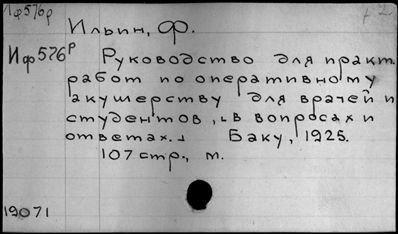 Иф576р
Ильин, Ф.
Иф576р Руководство для практ.
работ по оперативному
акушерству для врачей и
студентов, в вопросах и
ответах. Баку, 1925.
107 стр., м.
19071